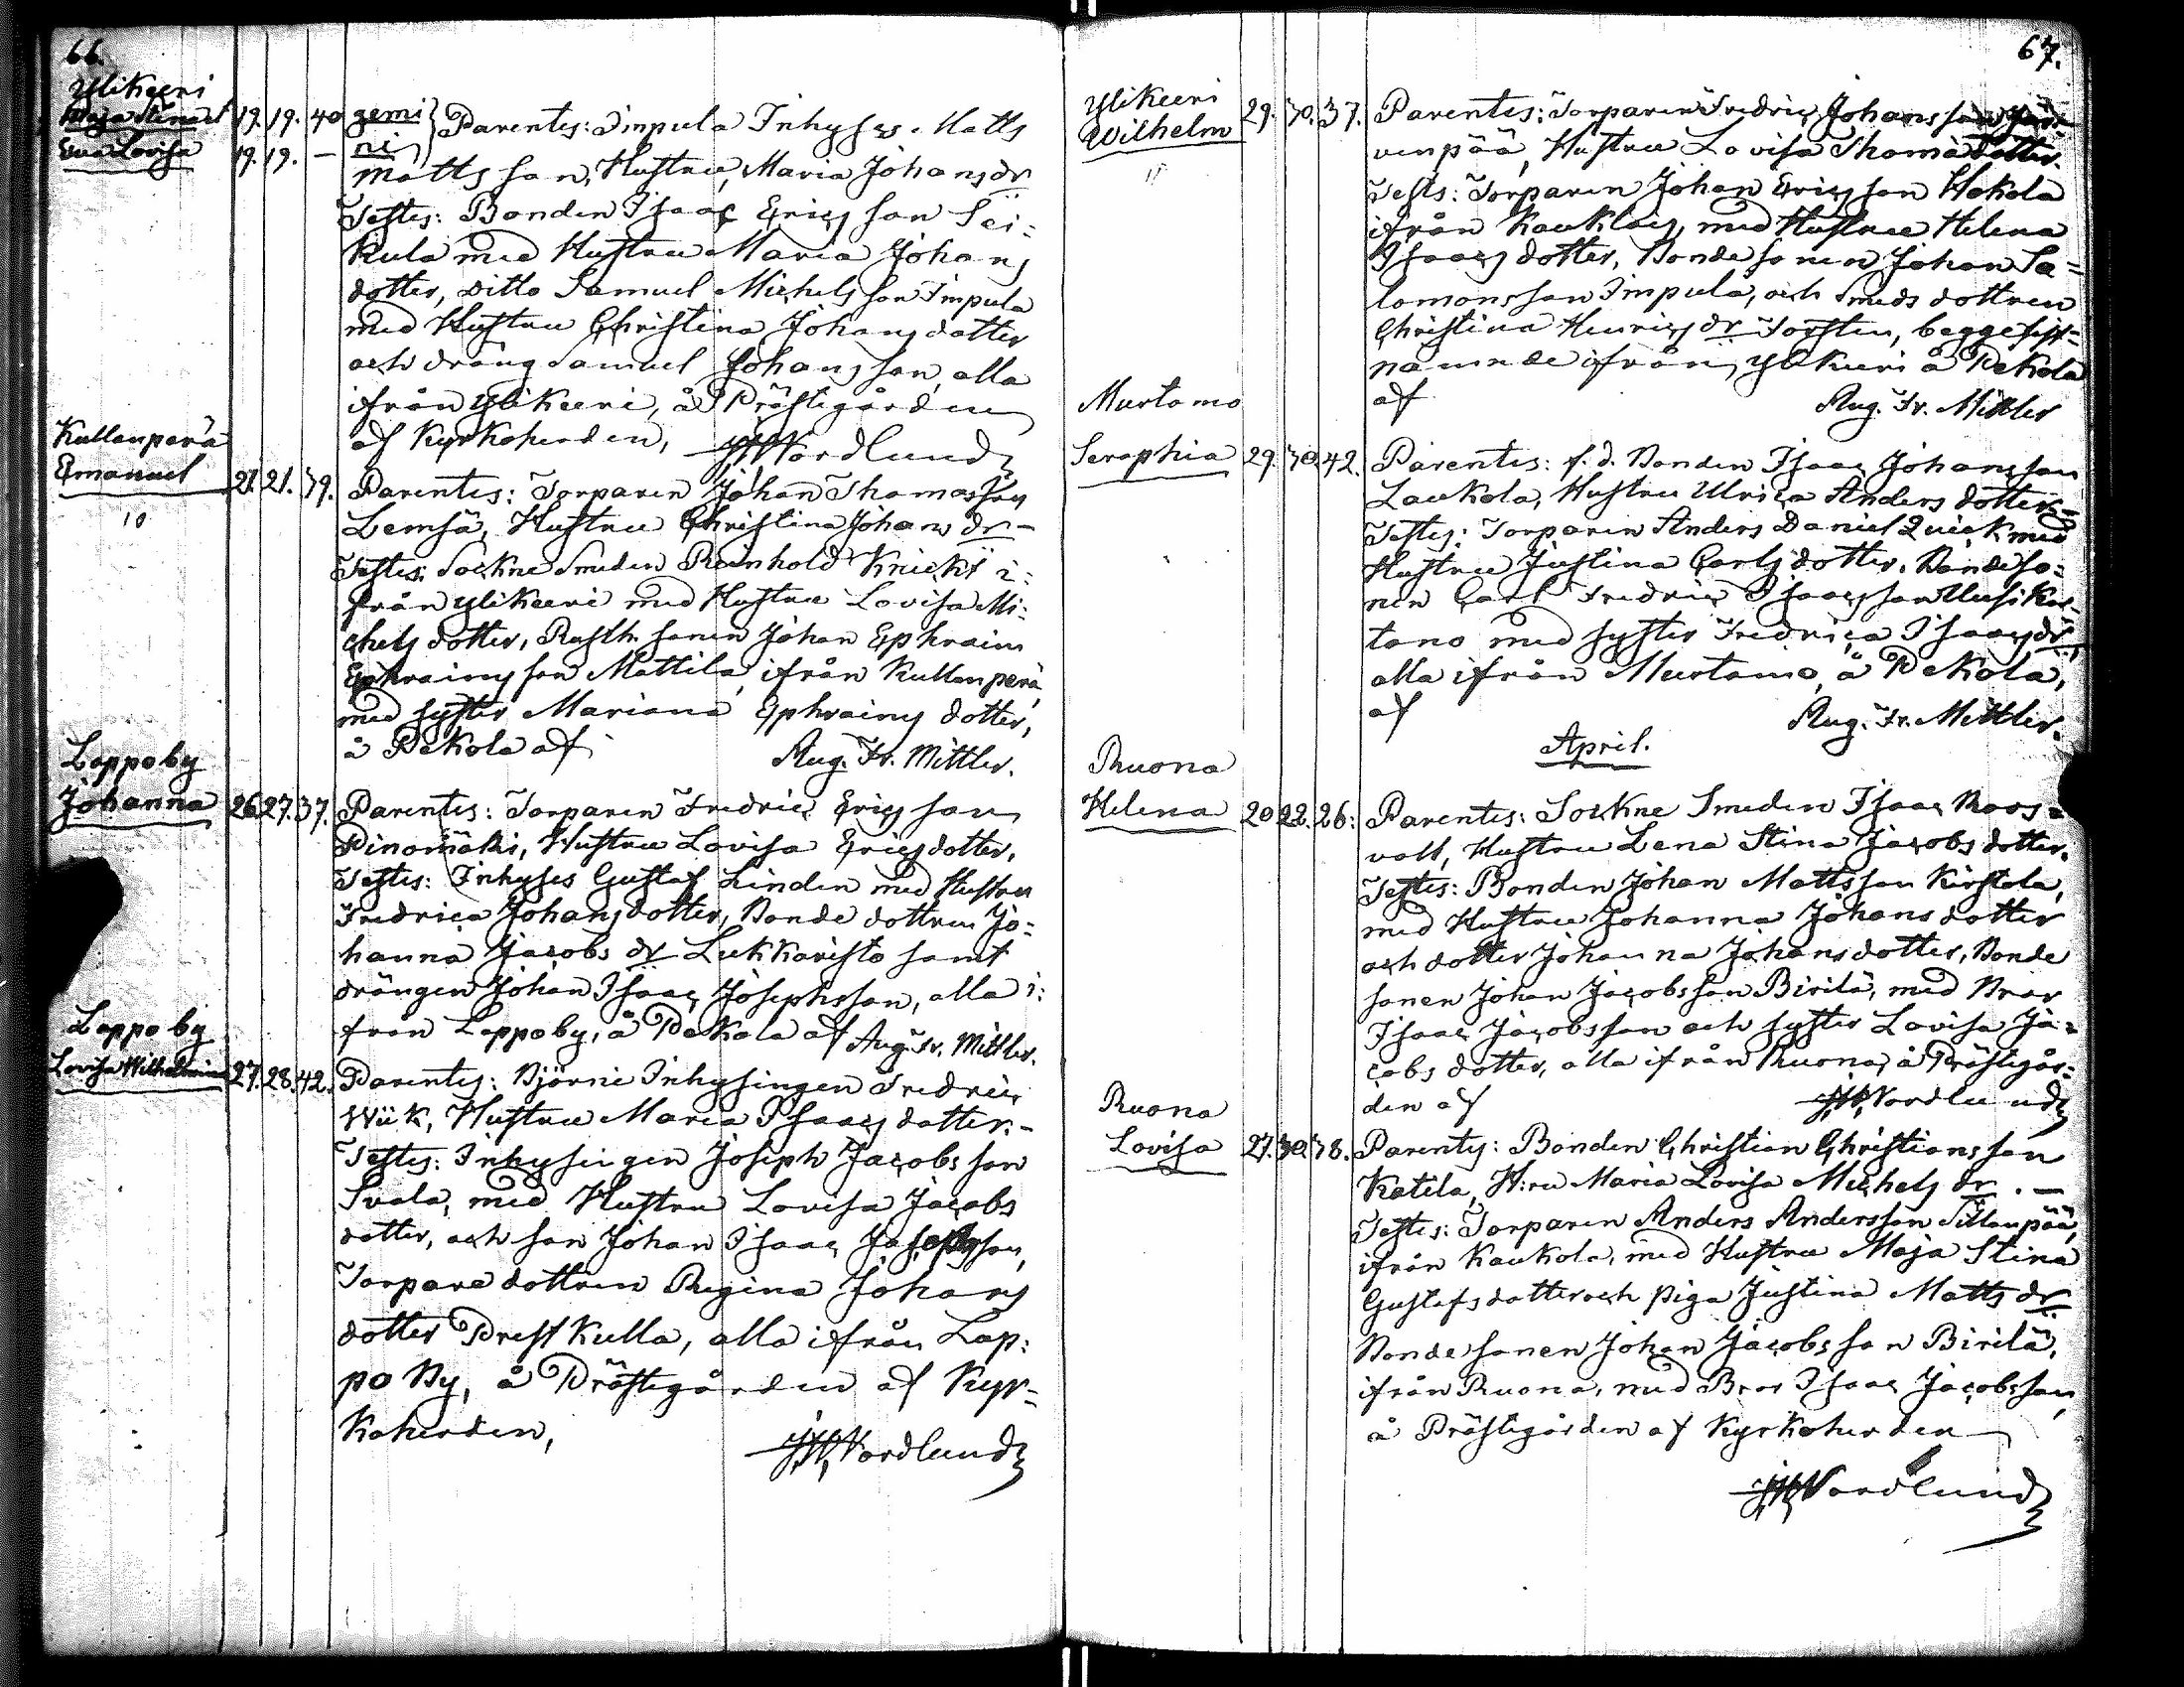 66.
Ylikeeri
Maja Stina et 19. 19. 40 gemi
Eva Lovisa 19. 19. — ni
Parentes: Simpula Inhyses. Matts
Mattsson, Hustru, Maria Johansdr
Testes: Bonden Isaac Ericsson Sei=
kula med Hustru Maria Johans
dotter, ditto Samuel Michelsson Simpula
med Hustru Christina Johansdotter
och dräng Samuel Johansson, alla
ifrån Ylikeeri, å Prästegården
af Kyrkoherden, Nordlund
Kullanperä
Emanuel 21. 21. 39. Parentes: Torparen Johan Thomasson
10
Lemsä, Hustru Christina Johans dr —
Testes: Sockne Smeden Reinhold Knickt i=
från Ylikeeri med Hustru Lovisa Mi=
chels dotter, Rusth. sonen Johan Ephraim
Ephraimsson Mattila, ifrån Kullanperä,
med syster Mariana Ephraims dotter,
å Pekola af Aug. Fr. Mittler.
Loppoby
Johanna 26. 27. 37. Parentes: Torparen Fredric Ericsson
Pinomäki, Hustru Lovisa Ericsdotter.
Testes: Inhyses Gustaf Linden med Hustru
Fredrica Johansdotter, Bonde dottren Jo=
hanna Jacobs dr Lukkaristo samt
drängen Johan Isaac Josephsson, alla i=
från Loppoby, å Pekola af Aug. Fr. Mittler.
Loppo by
Lovisa Wilhelmina 27. 28. 42. Parentes: Björni Inhysingen Fredric
Wiik, Hustru Maria Isaacsdotter. —
Testes: Inhysingen Joseph Jacobsson
Svala, med Hustru Lovisa Jacobs
dotter, och son Johan Isaac Josephsson,
Torpare dottren Regina Johans
dotter Prestkulla, alla ifrån Lop=
po By, å Prästegården af Kyr=
koherden, Nordlund
67.
Ylikeeri
Wilhelm 29. 30. 37. Parentes: Torparen Fredric Johansson Jär=
11
venpää, Hustru Lovisa Thomædotter.
Tests: Torparen Johan Ericsson Hokola
ifrån Kauklais, med Hustru Helena
Isaacsdotter, Bondesonen Johan Sa=
lomonsson Simpula, och Smeds dottren
Christina Henrics dr Torsten, begge sist=
nämnde ifrån Ylikeeri å Pekola
af Aug. Fr. Mittler
Murtamo
Seraphia 29. 30. 42. Parentes: f. d. Bonden Isaac Johansson
Laukola, Hustru Ulrica Anders dotter. —
Testes: Torparen Anders Daniel Quick med
Hustru Justina Carlsdotter, Bondeso=
nen Carl Fredric Isaacsson Uusikar=
tano med syster Fredrica Isaacsdr,
alla ifrån Murtamo, å Pekola,
af Aug. Fr. Mittler.
April.
Ruona
Helena 20. 22. 26: Parentes: Sockne Smeden Isaac Roos=
vall, Hustru Lena Stina Jacobs dotter.
Testes: Bonden Johan Mattsson Kirstola,
med Hustru Johanna Johans dotter
och dotter Johanna Johansdotter, Bonde
sonen Johan Jacobsson Birilä, med Bror
Isaac Jacobsson och syster Lovisa Ja=
cobs dotter, alla ifrån Ruona, å Prästegår=
den af Nordlund
Ruona
Lovisa 27. 30. 38. Parentes: Bonden Christian Christiansson
Katila, H:ru Maria Lovisa Michels dr. —
Testes: Torparen Anders Andersson Sillanpää,
ifrån Kaukola, med Hustru Maja Stina
Gustafsdotter och piga Justina Matts dr.
Bondesonen Johan Jacobsson Birilä,
ifrån Ruona, med Bror Isaac Jacobsson,
å Prästegården af Kyrkoherden
Nordlund